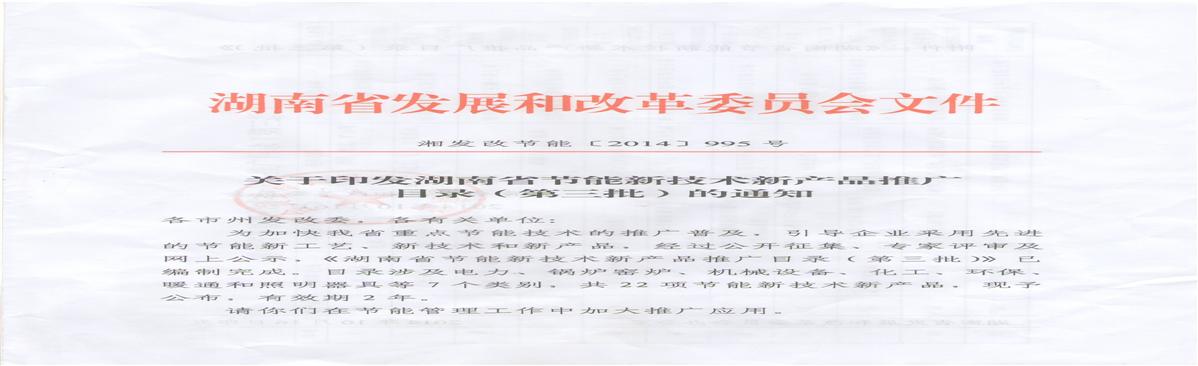 湖南省发展和改革委员会文件
湘发改节能〔2014〕995号
关于印发湖南省节能新技术新产品推广
目录（第三批）的通知
各市州发改委，各有关单位：
为加快我省重点节能技术的推广普及，引导企业采用先进
的节能新工艺、新技术和新产品，经过公开征集、专家评审及
网上公示，《湖南省节能新技术新产品推广目录（第三批）》已
编制完成。目录涉及电力、锅炉窑炉、机械设备、化工、环保、
暖通和照明器具等7个类别，共22项节能新技术新产品，现予
公布，有效期2年。
请你们在节能管理工作中加大推广应用。